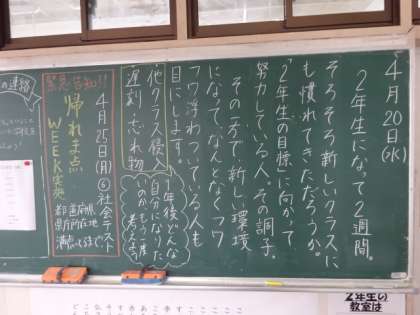 4月20日(水)
2年生になって2週間。
そろそろ新しいクラスに
も慣れてきただろうか。
「2年生の目標」に向かって
努力している人。その調子。
その一方で、新しい環境
になって、なんとなくフワ
フワ浮わついている人も
目にします。
他クラス侵入
遅刻、忘れ物
1年後どんな
自分になりた
いのかもう一度
考えよう
緊急告知!!
4月25日(月)⑥社会テスト
帰れま点
WEEK実施
都道府県
県庁所在地
満点とるまで
の連絡
2年生の
教室は